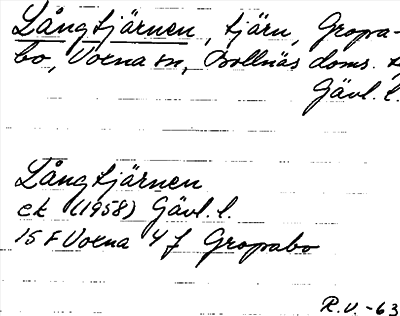 Långtjärnen, tjärn, Gropa-
bo, Voxna sn, Bollnäs doms.
Gävl. l.
Långtjärnen
ek (1958) Gävl. l.
15 F Voxna 4 f Gropabo
R.V. -63